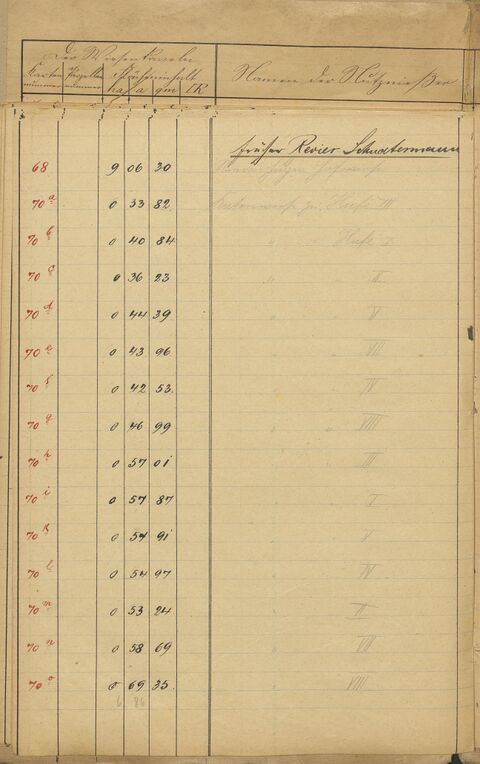 Der Wiesenkaveln
Namen der Nutznießer
Karten Parzellen Flächeninhalt
nummer nummer ha a qm
früher Revier Schustermann
68 9 06 30
70 a 0 33 82 zu Hufe III
70 b 0 40 84 " " Hufe I
70 c 0 36 23 " II
70 d 0 44 39 " V
70 e 0 43 96 " VII
70 f 0 42 53. " IV
70 g 0 46 99 " " VIII
70 h 0 57 01 " " III
70 i 0 57 87 " I
70 k 0 54 91 " V
70 l 0 54 97 " IV
70 m 0 53 24 II
70 n 0 58 69 VII
70 o 0 69 35. VIII
6 86